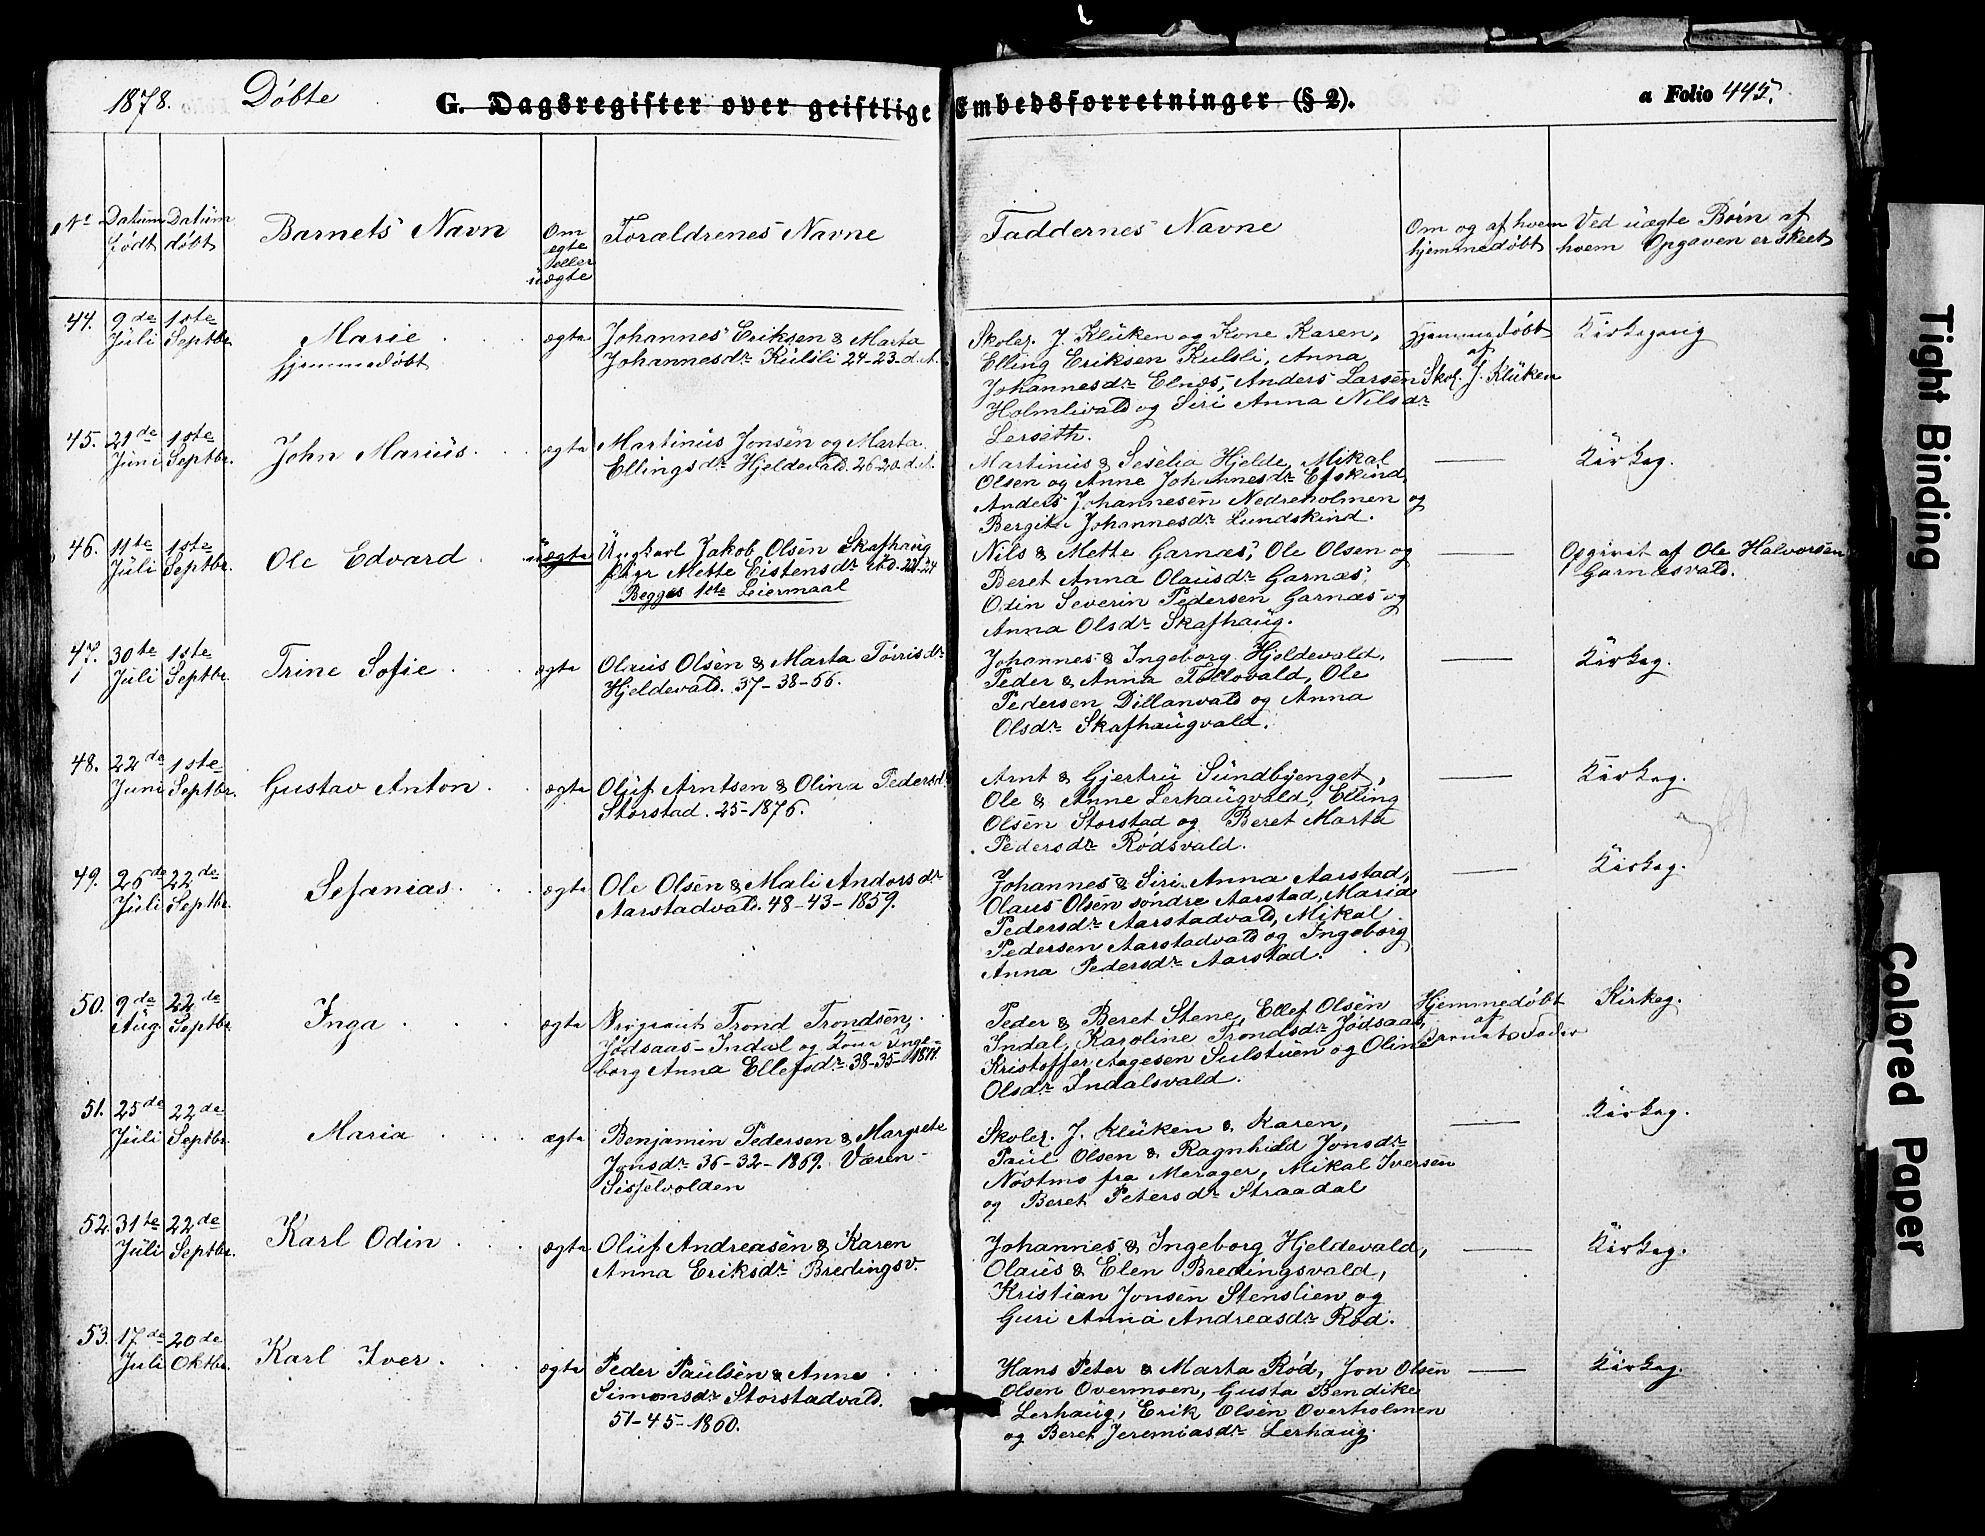 1878. Døbte G. Dagsregister over geistlige Embedsforretninger (§ 2). a Folio 445.
No Datum Født Datum døbt Barnets Navn Om egte eller uægte Forældrenes Navne Faddernes Navne Om og af hvem hjemmedøbt Ved uægte Børn af hvem Opgaven er skeet
44. 9de Juli 1ste Septbr. Marie hjemmedøbt ægte
Johannes Eriksen & Marta
Johannesdr. Kulsli 24-23-d.A.
Skolel. J. Klüken og Kone Karen,
Elling Eriksen Kulsli, Anna
Johannesdr. Elnæs, Anders Larsen
Holmlivald og Siri Anna Nilsdr.
Lerseth.
Hjemmedøbt
af
Skol. J. Klüken
Kirkegang
45. 21de Juni 1ste Septbr. John Marius ægte
Martinus Jonsen og Marta
Ellingsdr. Hjeldevald. 26 20. d. A.
Martinus & Seselia Hjelde, Mikal
Olsen og Anne Johannesdr. Efskind,
Anders Johannesen Nedreholmen og
Bergita Johannesdr. Lundskind.
Kirkeg.
46. 11te Juli 1ste Septbr. Ole Edvard uægte
Ungkarl Jakob Olsen Skafhaug
Pige Mette Eistensdr.
Begges 1ste Leiermaal
Nils & Mette Garnæs, Ole Olsen og
Beret Anna Olausdr. Garnæs,
Odin Severin Pedersen Garnæs og
Anna Olsdr. Skafhaug.
Opgivet af Ole Halvorsen
Garnæsvald.
47. 30te Juli 1ste Septbr. Trine Sofie ægte
Olaus Olsen & Marta Toirisdr.
Hjeldevald. 37-38-56.
Johannes & Ingeborg Hjeldevald,
Peder & Anna Follovald, Ole
Pedersen Dillanvald og Anna
Olsdr. Skafhaugvald.
Kirkeg.
48. 22de Juni 1ste Septbr. Gustav Anton ægte
Oluf Arntsen & Olina Pedersd.
Storstad. 25-1876.
Arnt & Gjertru Sundbyenget,
Ole & Anne Lerhaugvald, Elling
Olsen Storstad og Beret Marta
Pedersdr. Rødsvald.
Kirkeg.
49. 26de Juli 22de Septbr. Sefanias ægte
Ole Olsen & Mali Andorsdr.
Aarstadvald. 48-43-1859.
Johannes & Siri Anna Aarstad,
Olaus Olsen søndre Aarstad, Maria
Pedersdr. Aarstadvald, Mikal
Pedersen Aarstadvald og Ingeborg
Anna Pedersdr. Aarstad.
Kirkeg.
50. 9de Aug. 22de Septbr. Inga ægte
Trond Trondsen
Jødsaas-Indal og Kone Inge-
borg Anna Ellefsdr. 38-35-1877
Peder & Beret Stene, Ellef Olsen
Indal, Karoline Trondsdr. Jødsaas,
Kristoffer Aagesen Sulstuen og Oline
Olsdr. Indalsvald.
Hjemmedøbt
af
Barnets Fader
Kirkeg.
51. 25de Juli 22de Septbr. Maria ægte
Benjamin Pedersen & Margrete
Jonsdr. 36-32-1869. Væren-
Sisselvolden
Skolel. J. Klüken & Karen,
Paul Olsen & Ragnhild Jonsdr.
Nostmo fra Merager, Mikal Iversen
og Beret Petersdr. Straadal
Kirkeg.
52. 31te Juli 22de Septbr. Karl Odin ægte
Oluf Andreasen & Karen
Anna Eriksdr. Bredingsv.
Johannes & Ingeborg Hjeldevald,
Olaus & Elen Bredingsvald,
Kristian Jonsen Stenslien og
Guri Anna Andreasdr. Rød.
Kirkeg.
53. 17de Juli 20de Oktbr. Karl Iver ægte
Peder Paulsen & Anne
Simonsdr. Storstadvald.
51-45-1860.
Hans Peter & Marta Rød, Jon Olsen
Olsen Overmoen, Gusta Bendike
Lerhaug, Erik Olsen Overholmen
og Beret Jeremiasdr. Lerhaug.
Kirkeg.
Tight Binding
Colored Paper